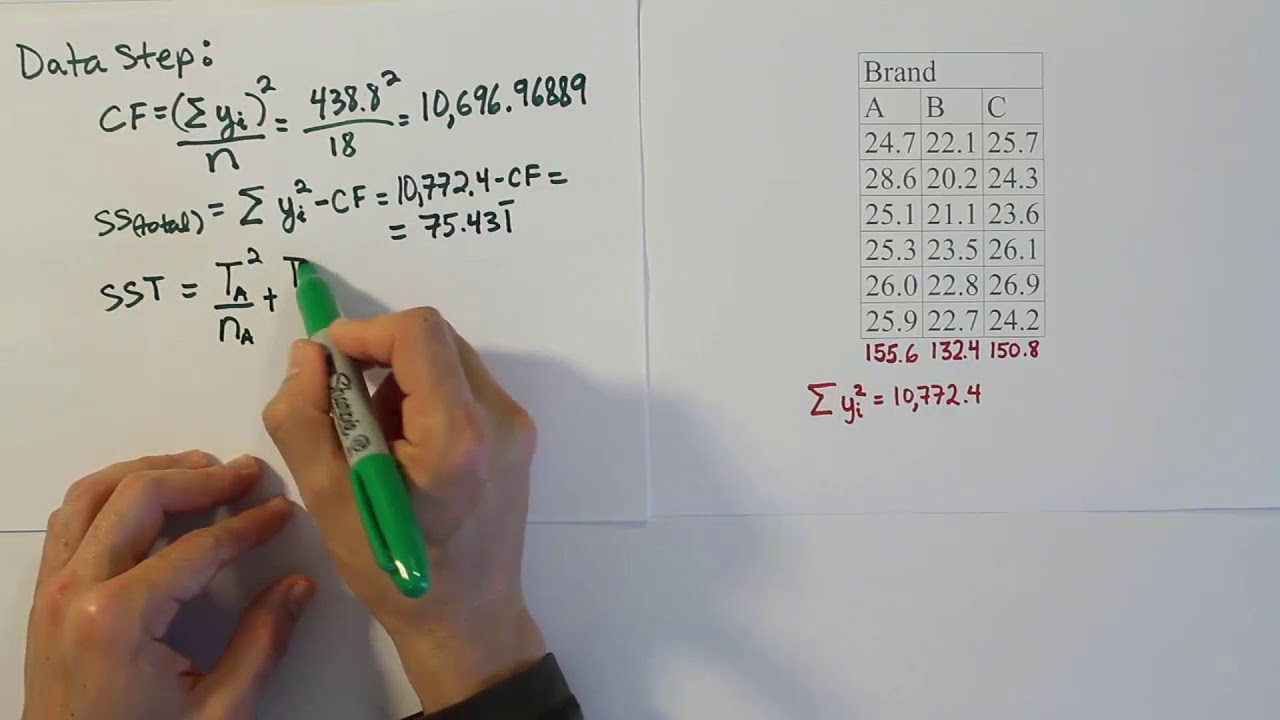 Data Step:
CF = (Σ yᵢ)² / n = 438.8² / 18 = 10,696.96889
SS(total) = Σ yᵢ² - CF = 10,772.4 - CF =
= 75.431̅
SST = T_A² / n_A + T
Sharpie
Brand
A B C
24.7 22.1 25.7
28.6 20.2 24.3
25.1 21.1 23.6
25.3 23.5 26.1
26.0 22.8 26.9
25.9 22.7 24.2
155.6 132.4 150.8
Σ yᵢ² = 10,772.4